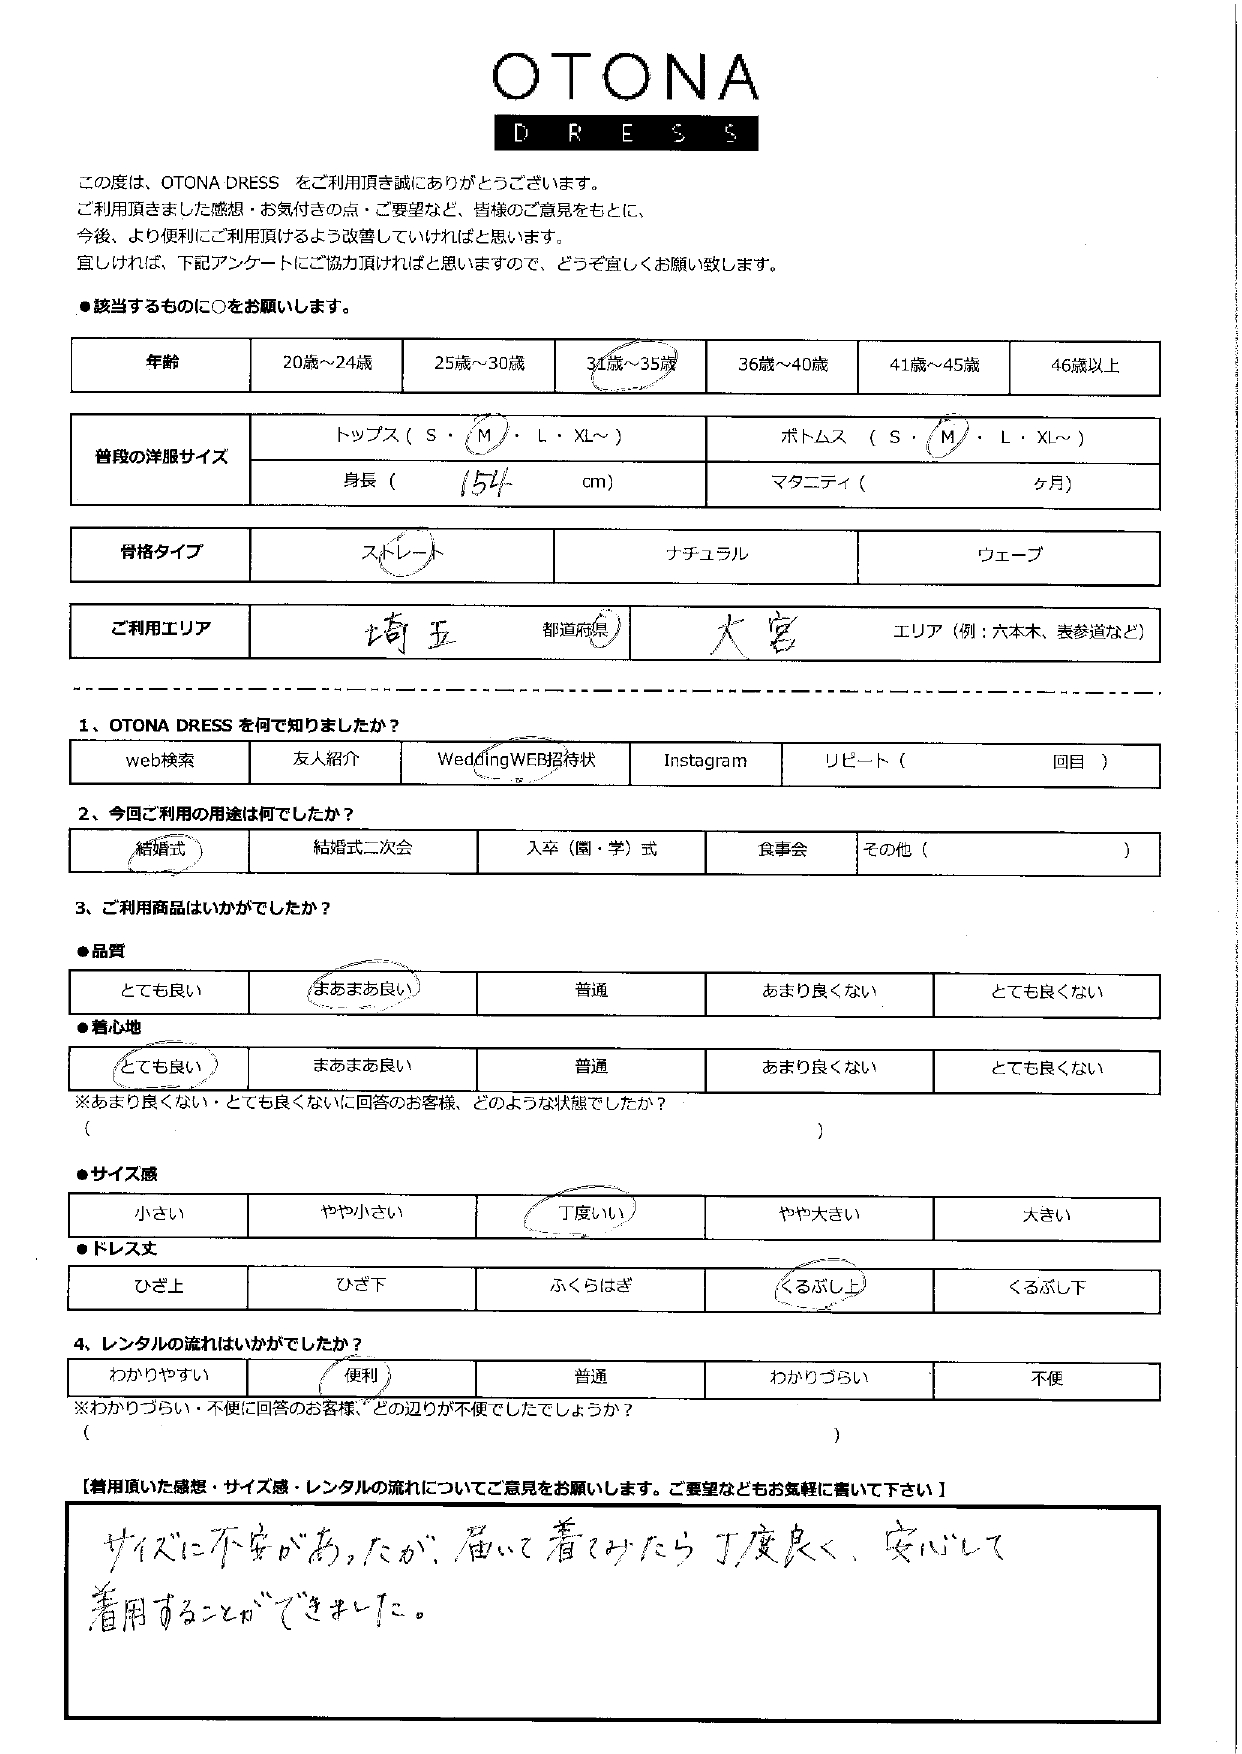 OTONA
DRESS
この度は、OTONA DRESS　をご利用頂き誠にありがとうございます。
ご利用頂きました感想・お気付きの点・ご要望など、皆様のご意見をもとに、
今後、より便利にご利用頂けるよう改善していければと思います。
宜しければ、下記アンケートにご協力頂ければと思いますので、どうぞ宜しくお願い致します。
●該当するものに○をお願いします。
年齢 20歳～24歳 25歳～30歳 31歳～35歳 36歳～40歳 41歳～45歳 46歳以上
普段の洋服サイズ トップス（ S ・ M ・ L ・ XL～ ） ボトムス （ S ・ M ・ L ・ XL～ ）
身長（ 154 cm） マタニティ（ ヶ月）
骨格タイプ ストレート ナチュラル ウェーブ
ご利用エリア 埼玉 都道府県 大宮 エリア（例：六本木、表参道など）
1、OTONA DRESS を何で知りましたか？
web検索 友人紹介 WeddingWEB招待状 Instagram リピート（ 回目 ）
2、今回ご利用の用途は何でしたか？
結婚式 結婚式二次会 入卒（園・学）式 食事会 その他（ ）
3、ご利用商品はいかがでしたか？
●品質
とても良い まあまあ良い 普通 あまり良くない とても良くない
●着心地
とても良い まあまあ良い 普通 あまり良くない とても良くない
※あまり良くない・とても良くないに回答のお客様、どのような状態でしたか？
（ ）
●サイズ感
小さい やや小さい 丁度いい やや大きい 大きい
●ドレス丈
ひざ上 ひざ下 ふくらはぎ くるぶし上 くるぶし下
4、レンタルの流れはいかがでしたか？
わかりやすい 便利 普通 わかりづらい 不便
※わかりづらい・不便に回答のお客様、どの辺りが不便でしたでしょうか？
（ ）
【着用頂いた感想・サイズ感・レンタルの流れについてご意見をお願いします。ご要望などもお気軽に書いて下さい】
サイズに不安があったが、届いて着てみたら丁度良く、安心して
着用することができました。